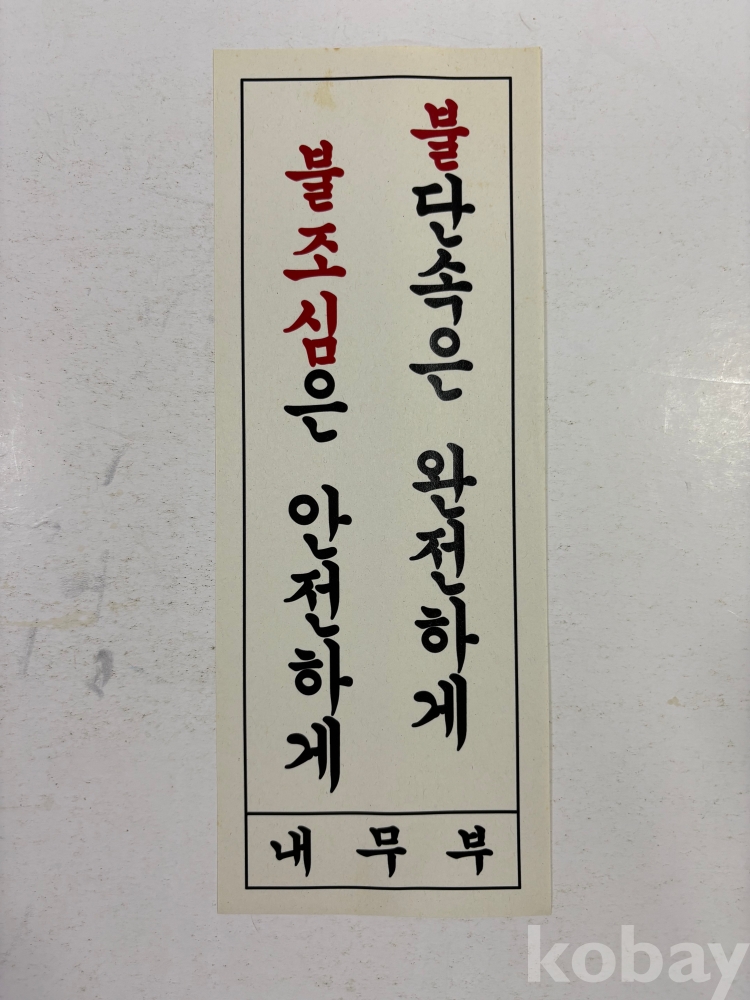 불단속은 완전하게
불조심은 안전하게
내무부
kobay